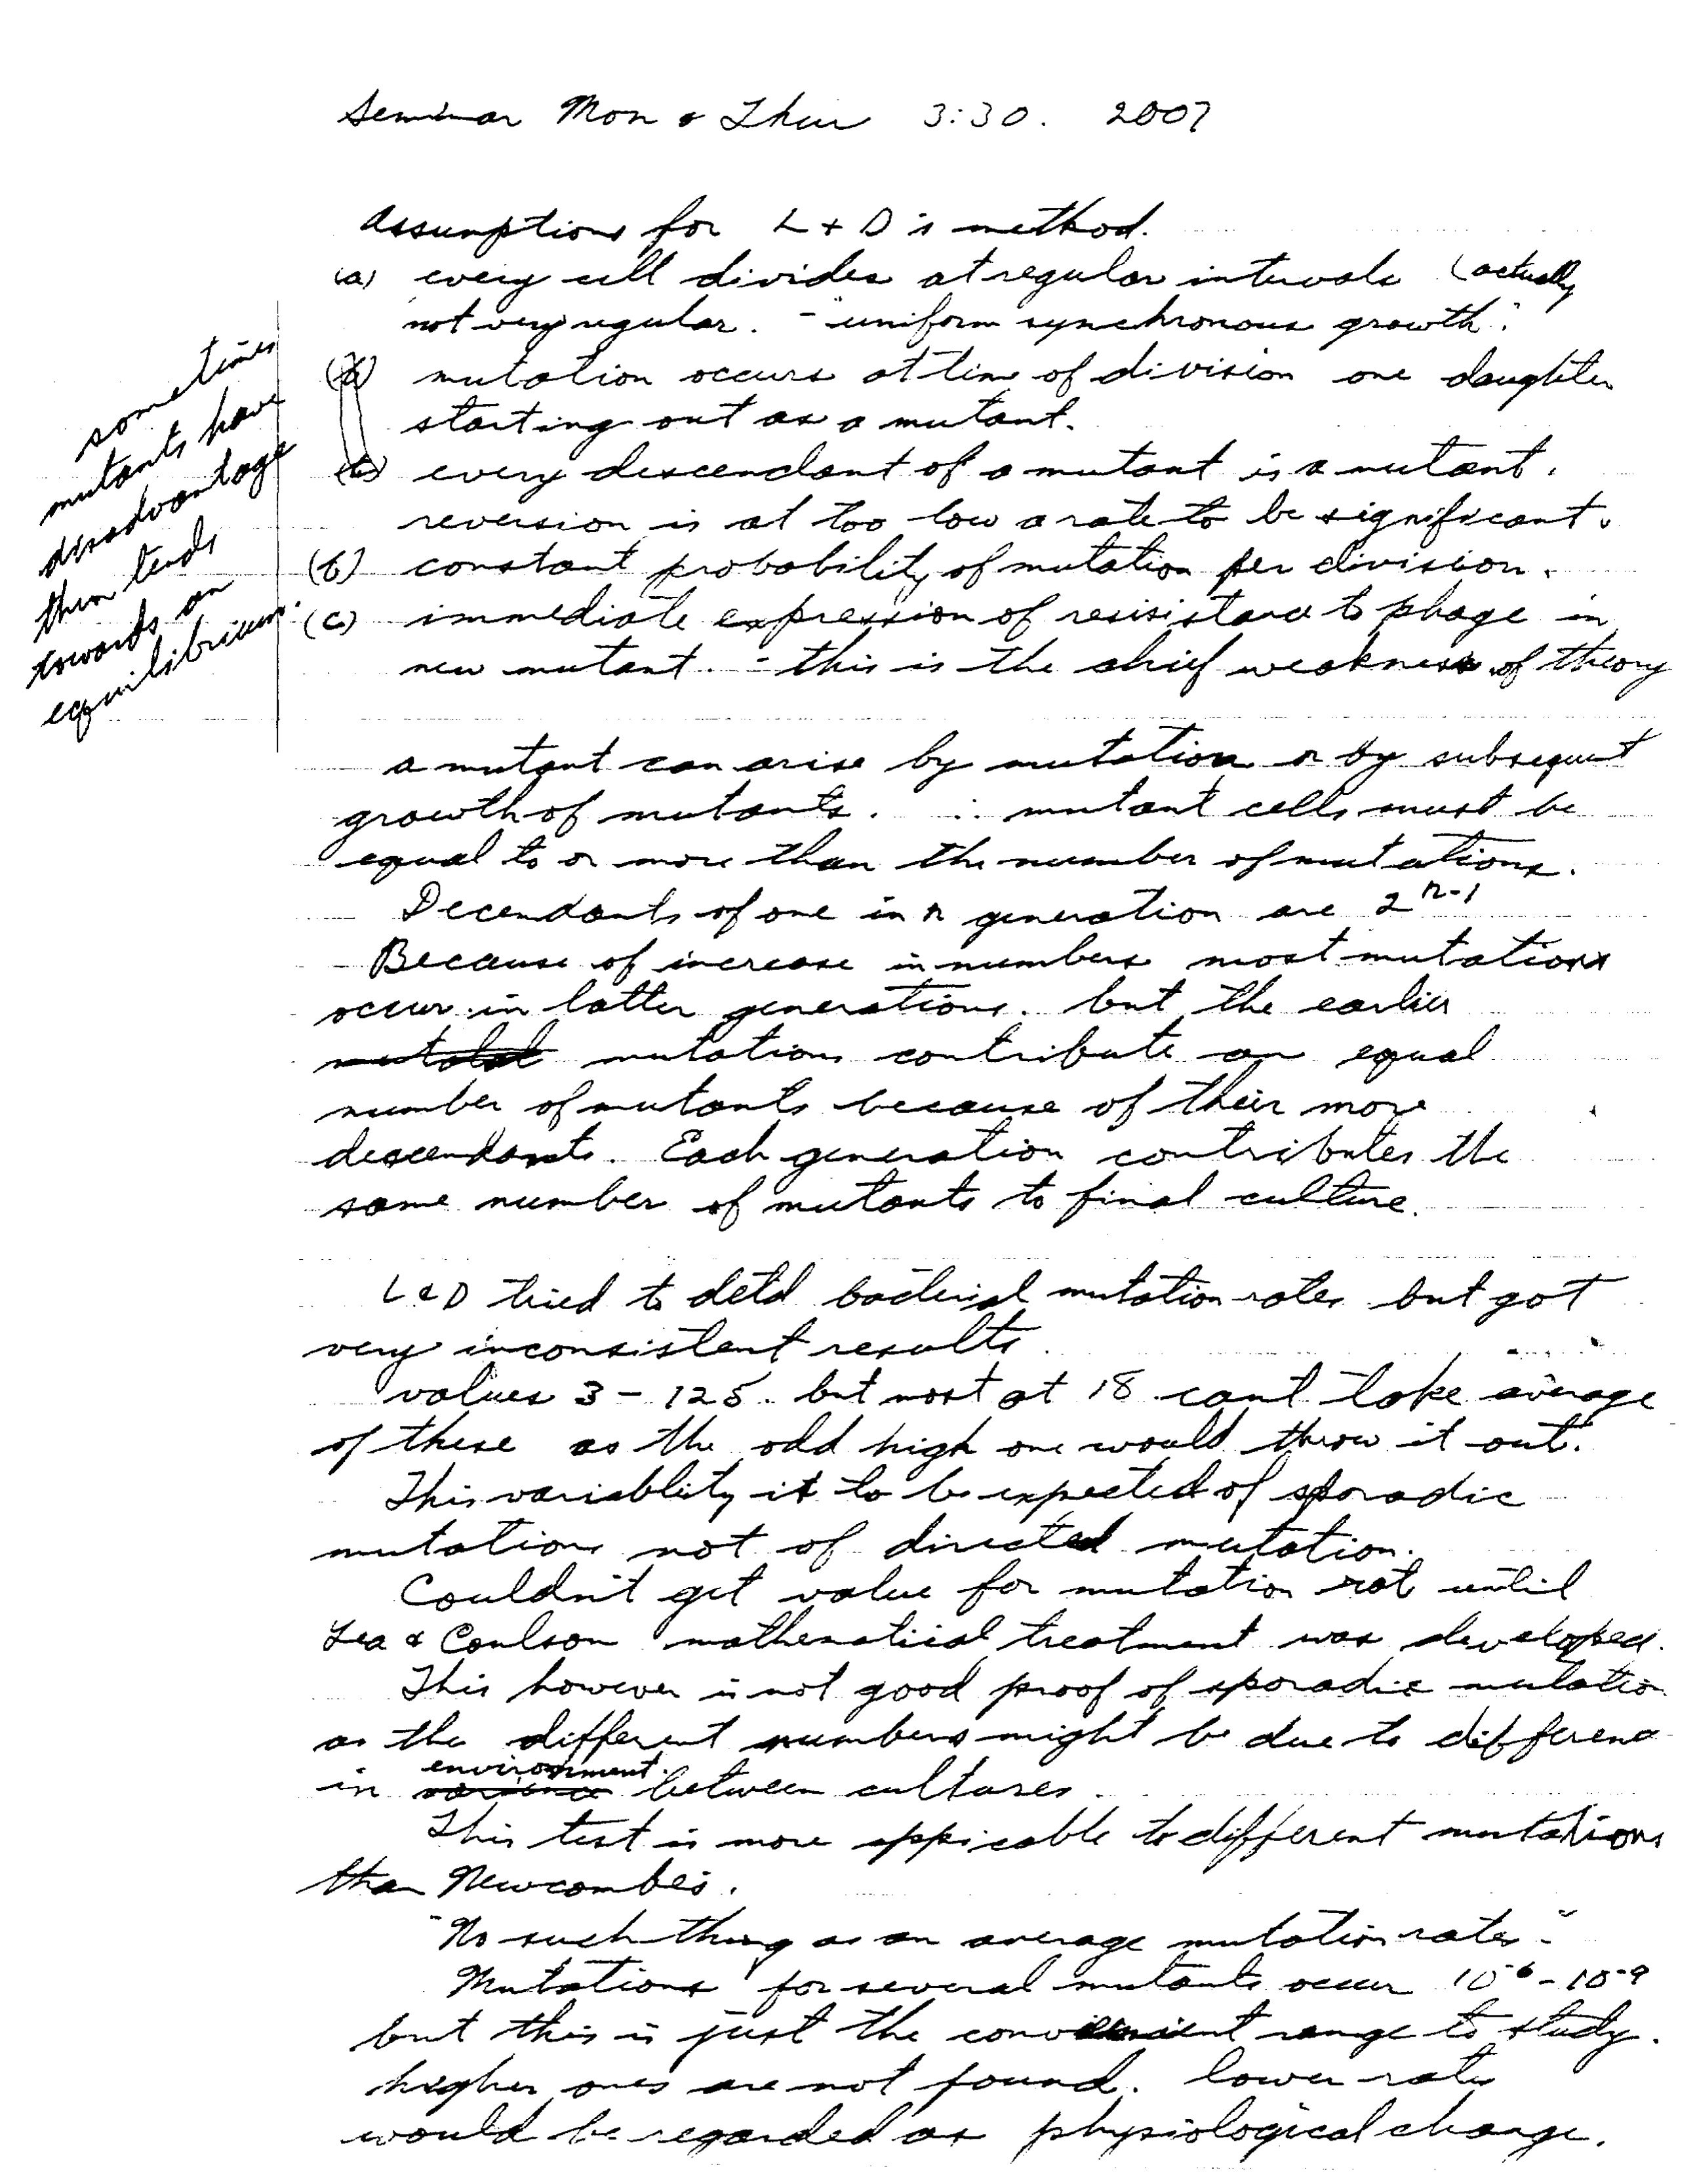 Seminar Mon & Thur 3:30. 2007
Assumptions for L + D's method.
(a) every cell divides at regular intervals (actually
not very regular. - "uniform synchronous growth".
mutation occurs at time of division one daughter
starting out as a mutant.
every descendant of a mutant is a mutant.
reversion is at too low a rate to be significant.
(b) constant probability of mutation per division.
(c) immediate expression of resisistance to phage in
new mutant. - this is the chief weakness of theory
sometimes
mutants have
disadvantage
then tends
towards an
equilibrium.
a mutant can arise by mutation or by subsequent
growth of mutants. ∴ mutant cells must be
equal to or more than the number of mutations.
Decendants of one in n generation are 2^n-1
Because of increase in numbers most mutations
occur in latter generations. but the earlier
mutations contribute an equal
number of mutants because of their more
descendants. Each generation contributes the
same number of mutants to final culture.
L & D tried to det'd bacterial mutation rates but got
very inconsistent results.
values 3 - 125. but most at 18 can't take average
of these as the odd high one would throw it out.
This variablity is to be expected of sporadic
mutations not of directed mutation.
Couldn't get value for mutation rat until
Lea & Coulson mathematical treatment was developed.
This however is not good proof of sporadic mutation
as the different numbers might be due to difference
in environment between cultures.
This test is more appicable to different mutations
than Newcombe's.
"No such thing as an average mutation rate"-
Mutations for several mutants occur 10^-6 - 10^-9
but this is just the convenient range to study.
higher ones are not found. lower rates
would be regarded as physiological change.